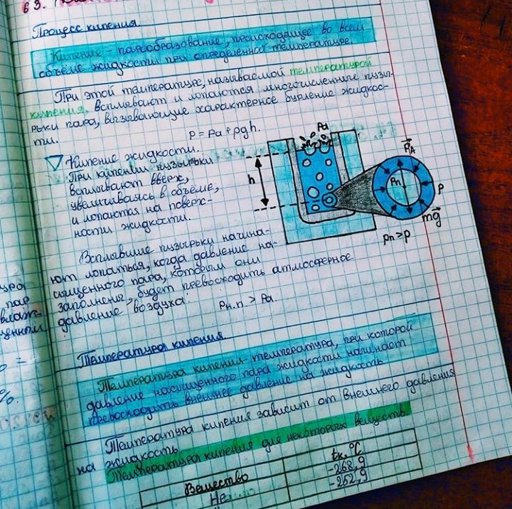 63.
Процесс кипения.
Кипение - парообразование, происходящее во всем
объеме жидкости при определенной температуре.
При этой температуре, называемой температурой
кипения, всплывают и лопаются многочисленные пузы-
рьки пара, вызывающие характерное бурление жидкос-
ти.
P = Pa + ρgh.
Кипение жидкости.
При кипении пузырьки
всплывают вверх,
увеличиваясь в объеме,
и лопаются на поверх-
ности жидкости.
Pa
h
FA
Pп
P
mg
Pп > P
Всплывшие пузырьки начина-
ют лопаться, когда давление на-
сыщенного пара, которым они
заполнены, будет превосходить атмосферное
давление воздуха:
Pн.п > Pa
Температура кипения
Температура кипения - температура, при которой
давление насыщенного пара жидкости начинает
превосходить внешнее давление на жидкость
Температура кипения зависит от внешнего давления
на жидкость
Температура кипения для некоторых веществ
Вещество
tк, °C
He
-268,9
-252,9